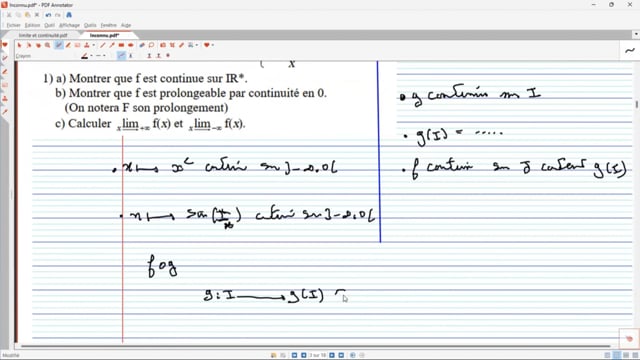 Inconnu.pdf* - PDF Annotator
Fichier Edition Affichage Outils Fenêtre Aide
limite et continuité.pdf Inconnu.pdf*
Crayon
x
1) a) Montrer que f est continue sur IR*.
b) Montrer que f est prolongeable par continuité en 0.
(On notera F son prolongement)
c) Calculer lim x→+∞ f(x) et lim x→-∞ f(x).
• x ↦ x² continu sur ]-∞.0[
• x ↦ sin(π/x) continu sur ]-∞.0[
fog
g : I → g(I)
• g continu sur I
• g(I) = .....
• f continu sur J contenant g(I)
Modifié
3 sur 18